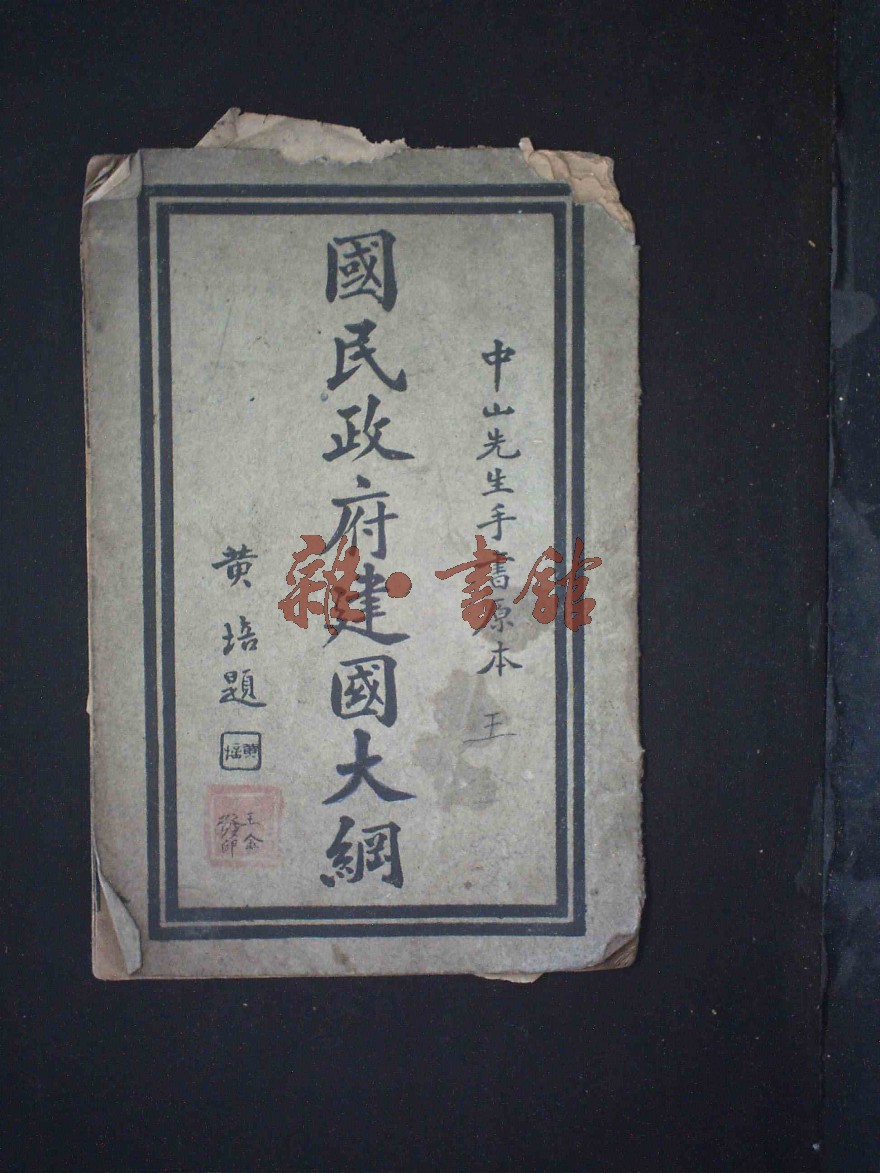 中山先生手書原本
王
國民政府建國大綱
黄培題
黄培
王金
發印
雜·書館